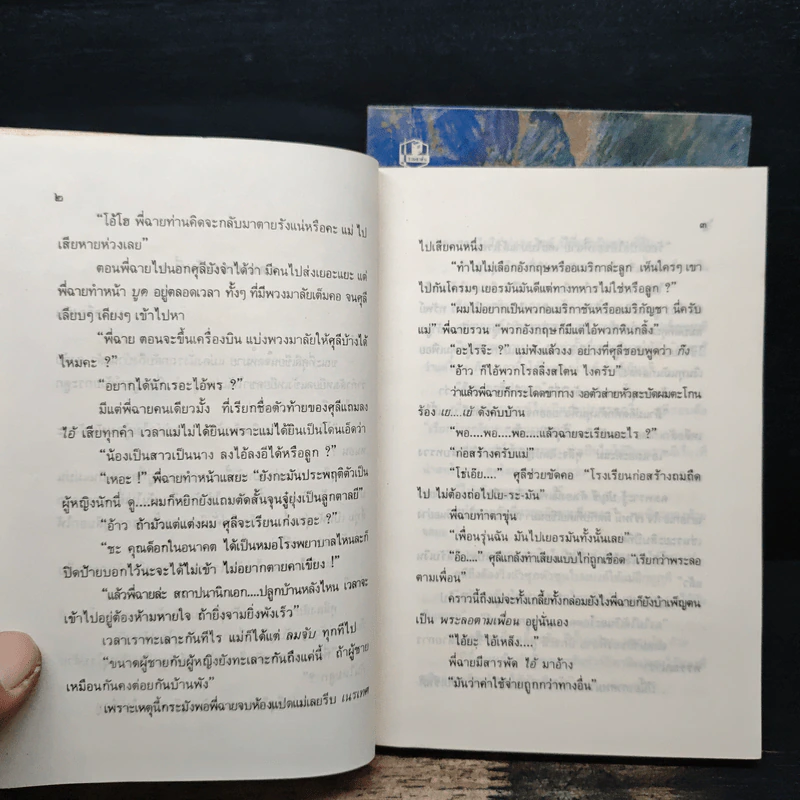 ๒
“โอ้โฮ พี่ฉายท่านคิดจะกลับมาตายรังแน่หรือคะ แม่ ไป
เสียหายห่วงเลย”
ตอนพี่ฉายไปนอกศุลียังจำได้ว่า มีคนไปส่งเยอะแยะ แต่
พี่ฉายทำหน้า บูด อยู่ตลอดเวลา ทั้งๆ ที่มีพวงมาลัยเต็มคอ จนศุลี
เลียบๆ เคียงๆ เข้าไปหา
“พี่ฉาย ตอนจะขึ้นเครื่องบิน แบ่งพวงมาลัยให้ศุลีบ้างได้
ไหมคะ ?”
“อยากได้นักเรอะไอ้พร ?”
มีแต่พี่ฉายคนเดียวมั้ง ที่เรียกชื่อตัวท้ายของศุลีแถมลง
ไอ้ เสียทุกคำ เวลาแม่ไม่ได้ยินเพราะแม่ได้ยินเป็นโดนเอ็ดว่า
“น้องเป็นสาวเป็นนาง ลงไอ้ลงอีได้หรือลูก ?”
“เหอะ !” พี่ฉายทำหน้าแสยะ “ยังกะมันประพฤติตัวเป็น
ผู้หญิงนักนี่ ดู....ผมก็หยิกยังแถมตัดสั้นจุนจู๋ยุ่งเป็นลูกตาลยี”
“อ้าว ถ้ามัวแต่แต่งผม ศุลีจะเรียนเก่งเรอะ ?”
“ชะ คุณด็อกในอนาคต ได้เป็นหมอโรงพยาบาลไหนละก็
ปิดป้ายบอกไว้นะจะได้ไม่เข้า ไม่อยากตายคาเขียง !”
“แล้วพี่ฉายล่ะ สถาปนานิกเอก....ปลูกบ้านหลังไหน เวลาจะ
เข้าไปอยู่ต้องห้ามหายใจ ถ้ายิ่งจามยิ่งพังเร็ว”
เวลาเราทะเลาะกันทีไร แม่ก็ได้แต่ ลมจับ ทุกทีไป
“ขนาดผู้ชายกับผู้หญิงยังทะเลาะกันถึงแค่นี้ ถ้าผู้ชาย
เหมือนกันคงต่อยกันบ้านพัง”
เพราะเหตุนี้กระมังพอพี่ฉายจบห้องแปดแม่เลยรีบ เนรเทศ
๓
ไปเสียคนหนึ่ง
“ทำไมไม่เลือกอังกฤษหรืออเมริกาล่ะลูก เห็นใครๆ เขา
ไปกันโครมๆ เยอรมันมันดีแต่ทางทหารไม่ใช่หรือลูก ?”
“ผมไม่อยากเป็นพวกอเมริกาชันหรืออเมริกัญชา นี่ครับ
แม่” พี่ฉายรวน “พวกอังกฤษก็มีแต่ไอ้พวกหินกลิ้ง”
“อะไรจ๊ะ ?” แม่ฟังแล้วงง อย่างที่ศุลีชอบพูดว่า ก๊ง
“อ้าว ก็ไอ้พวกโรลลิ่งสโตน ไงครับ”
ว่าแล้วพี่ฉายก็กระโดดขากาง งอตัวส่ายหัวสะบัดผมตะโกน
ร้อง เย....เย้ ดังคับบ้าน
“พอ....พอ....พอ....แล้วฉายจะเรียนอะไร ?”
“ก่อสร้างครับแม่”
“โช่เอ๊ย....” ศุลีช่วยขัดคอ “โรงเรียนก่อสร้างถมถืด
ไป ไม่ต้องถ่อไปเย-ระ-มัน”
พี่ฉายทำตาขุ่น
“เพื่อนวุ่นฉัน มันไปเยอรมันทั้งนั้นเลย”
“อ๊อ....” ศุลีแกล้งทำเสียงแบบไก่ถูกเชือด “เรียกว่าพระลอ
ตามเพื่อน”
คราวนี้ถึงแม่จะทั้งเกลี้ยทั้งกล่อมยังไงพี่ฉายก็ยังบำเพ็ญตน
เป็น พระลอตามเพื่อน อยู่นั่นเอง
“ไอ้ยะ ไอ้เหลิ็ง....”
พี่ฉายมีสารพัด ไอ้ มาอ้าง
“มันว่าค่าใช้จ่ายถูกกว่าทางอื่น”